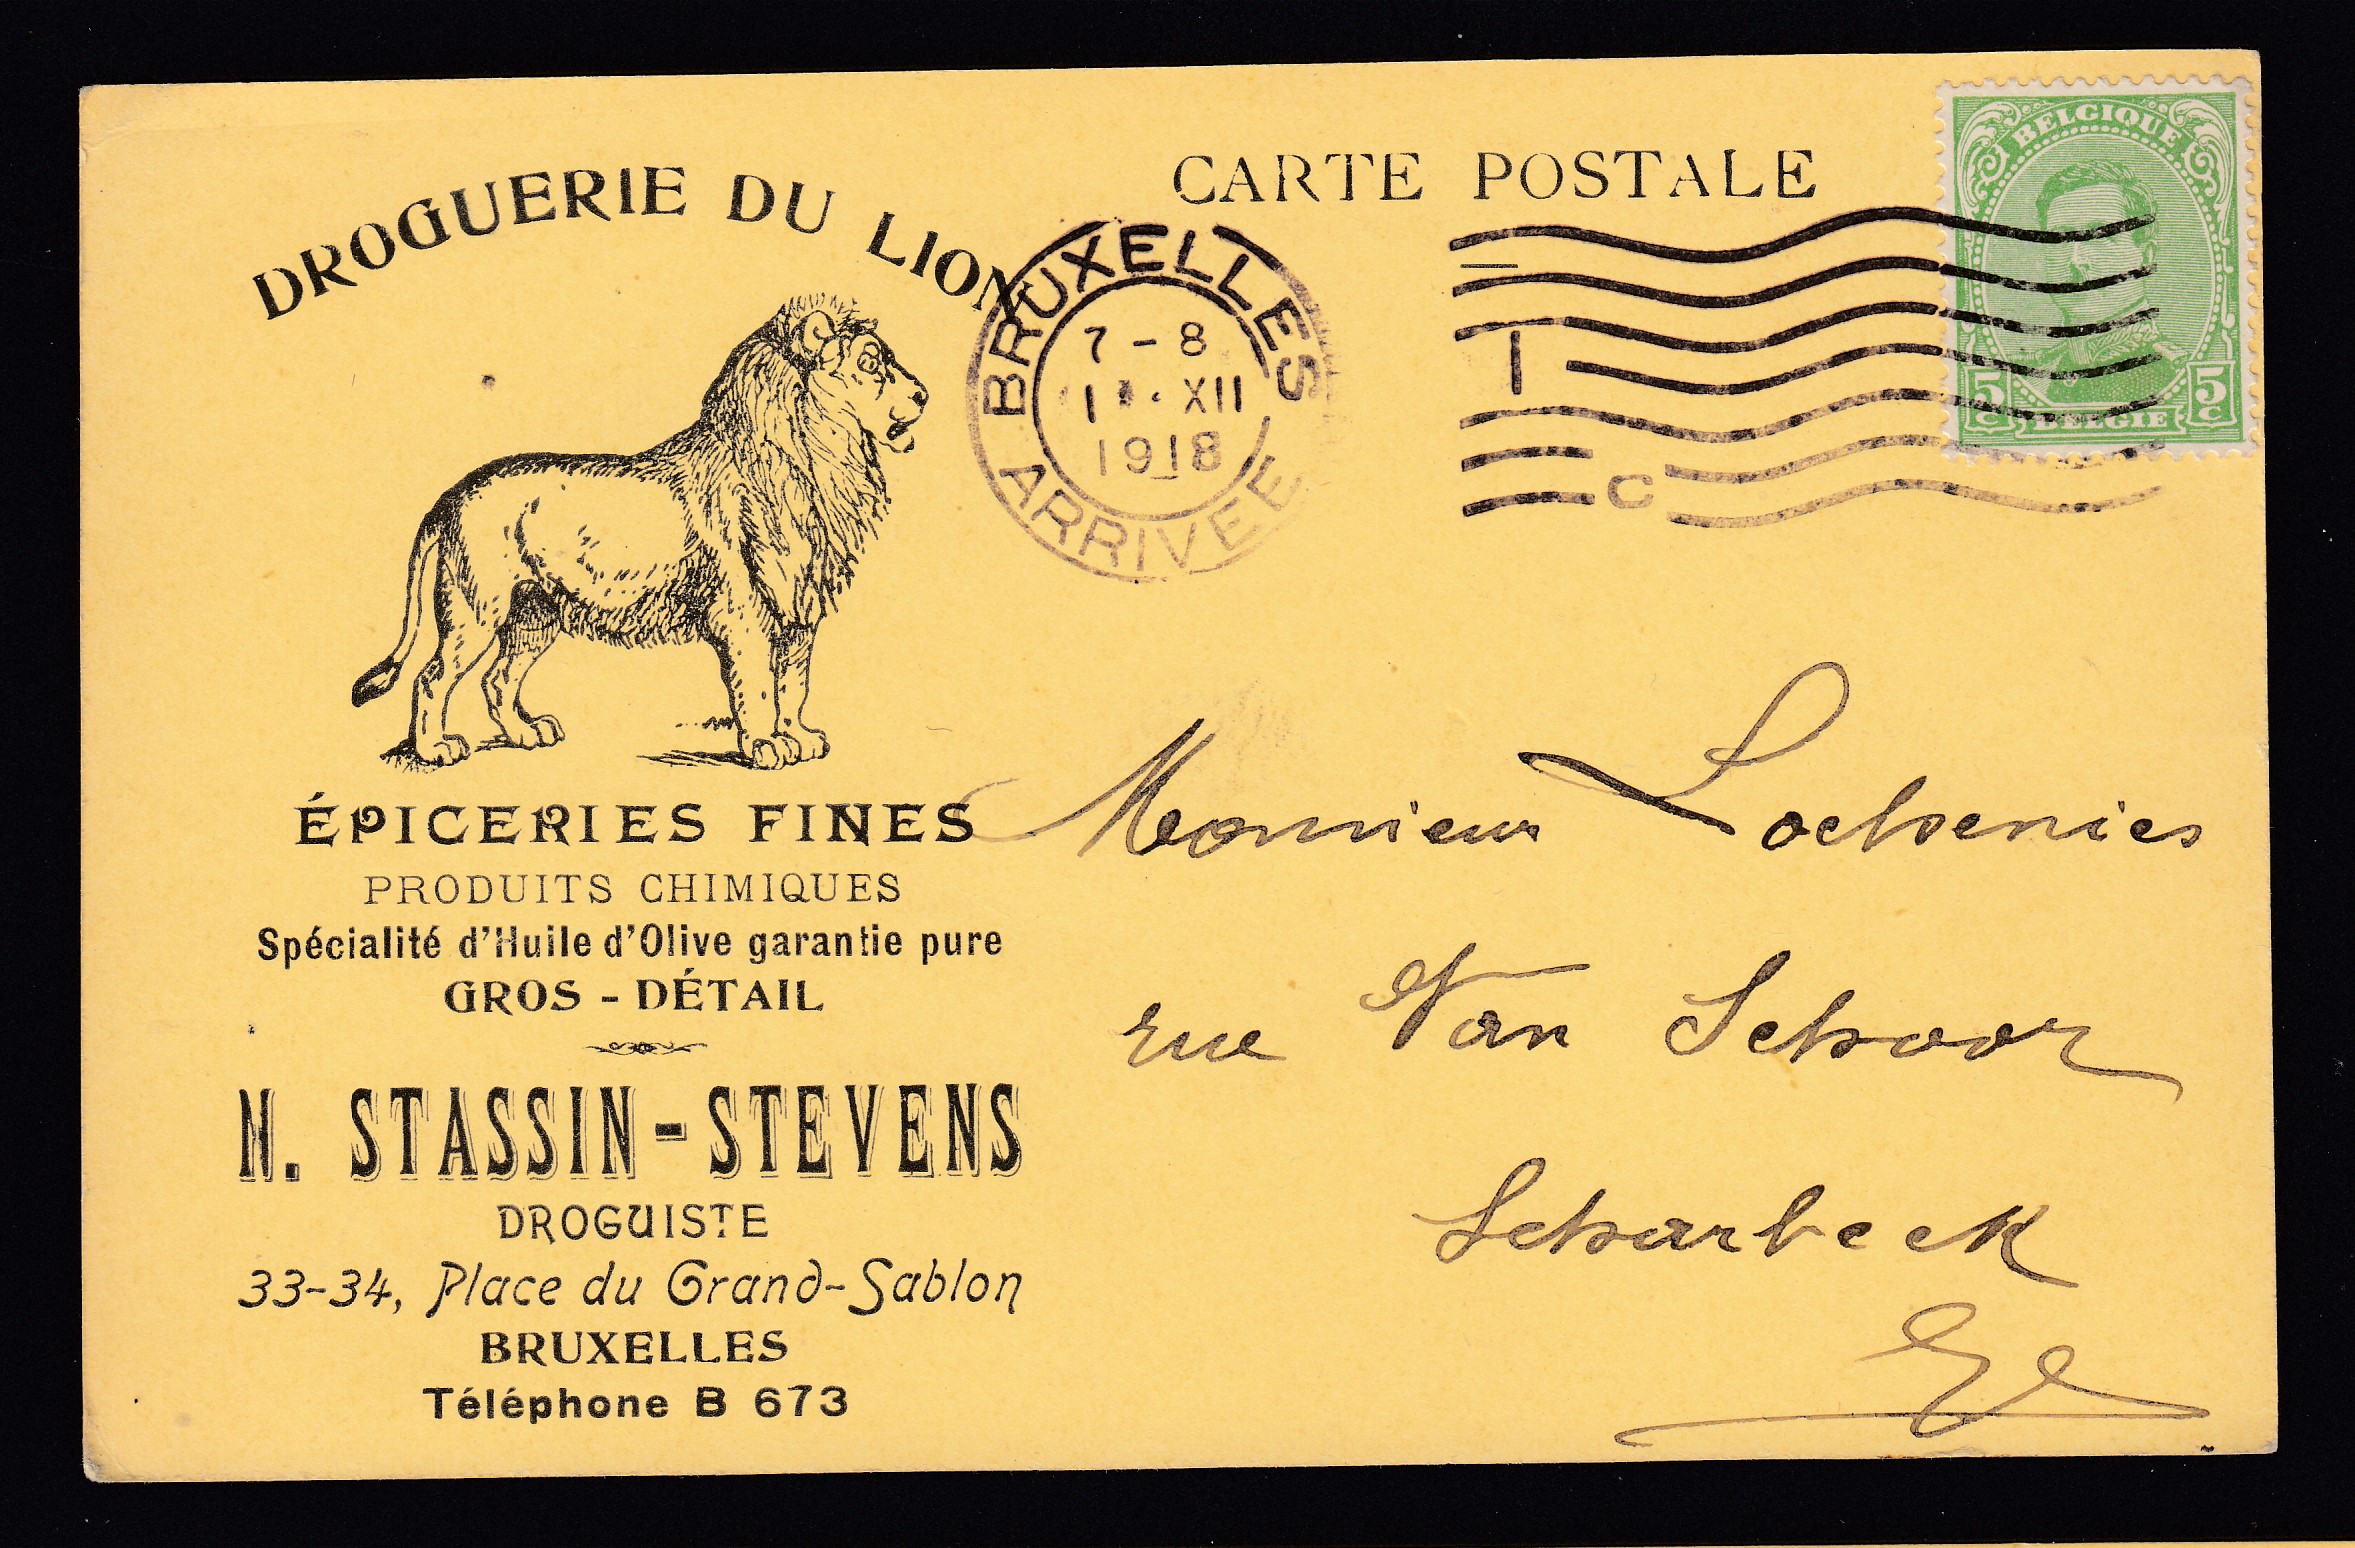 DROGUERIE DU LION
ÉPICERIES FINES
PRODUITS CHIMIQUES
Spécialité d'Huile d'Olive garantie pure
GROS - DÉTAIL
N. STASSIN-STEVENS
DROGUISTE
33-34, Place du Grand-Sablon
BRUXELLES
Téléphone B 673
CARTE POSTALE
BRUXELLES
7-8
XII
1918
ARRIVEE
C
BELGIQUE
5c 5c
BELGIE
Monsieur Lochenies
rue Van Schoor
Scharbeck